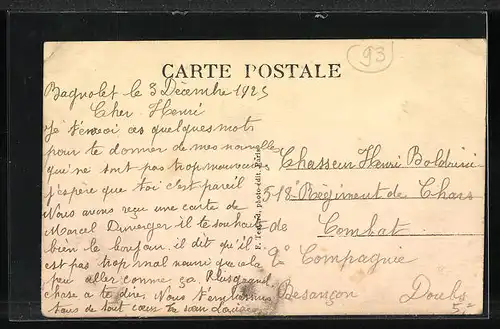 93
CARTE POSTALE
Bagnolet le 3 Décembre 1925
Cher Henri
Je t'envoi ces quelques mots
pour te donner de mes nouvelle
qui ne sont pas trop mauvaises
j'espère que toi c'est pareil
Nous avons reçu une carte de
Marcel il te souhait
bien le bonjour. il dit qu'il
est pas trop mal nourri que cela
peu aller comme ça. Plus grand
chose a te dire. Nous t'embrassons
tous de tout cœur
Chasseur Henri
518e Régiment de Chars
de Combat
2e Compagnie
Besançon Doubs